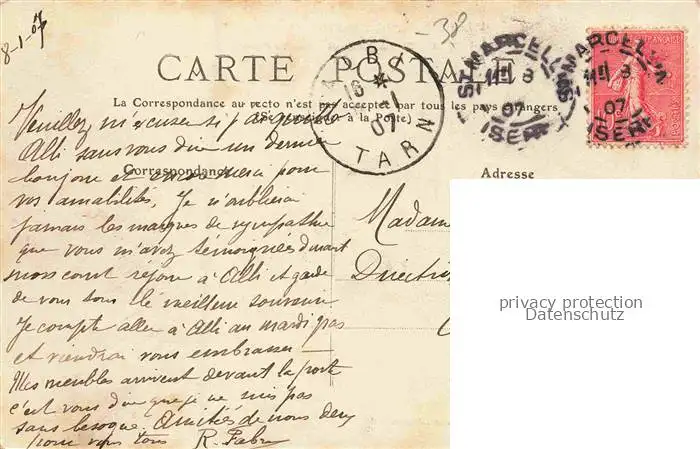 8-1-07
-38
CARTE POSTALE
La Correspondance au recto n'est pas acceptée par tous les pays étrangers
(Se à la Poste)
Correspondance
Adresse
ALBI
16 -1
07
TARN
ST MARCELLIN
8
07
ISERE
ST MARCELLIN
8
07
ISERE
Veuillez m'excuser si j'ai quitté
Albi sans vous dire un dernier
bonjour et encore merci pour
vos amabilités. Je n'oublierai
jamais les marques de sympathie
que vous m'avez témoignées durant
mon court séjour à Albi et garde
de vous tous le meilleur souvenir
Je compte aller à Albi au mardi gras
et viendrai vous embrasser —
Mes meubles arrivent devant la porte
c'est vous dire que je ne suis pas
sans besogne. Amitiés de nous deux
pour vous tous R. Fabre
Madame
Directri
privacy protection
Datenschutz